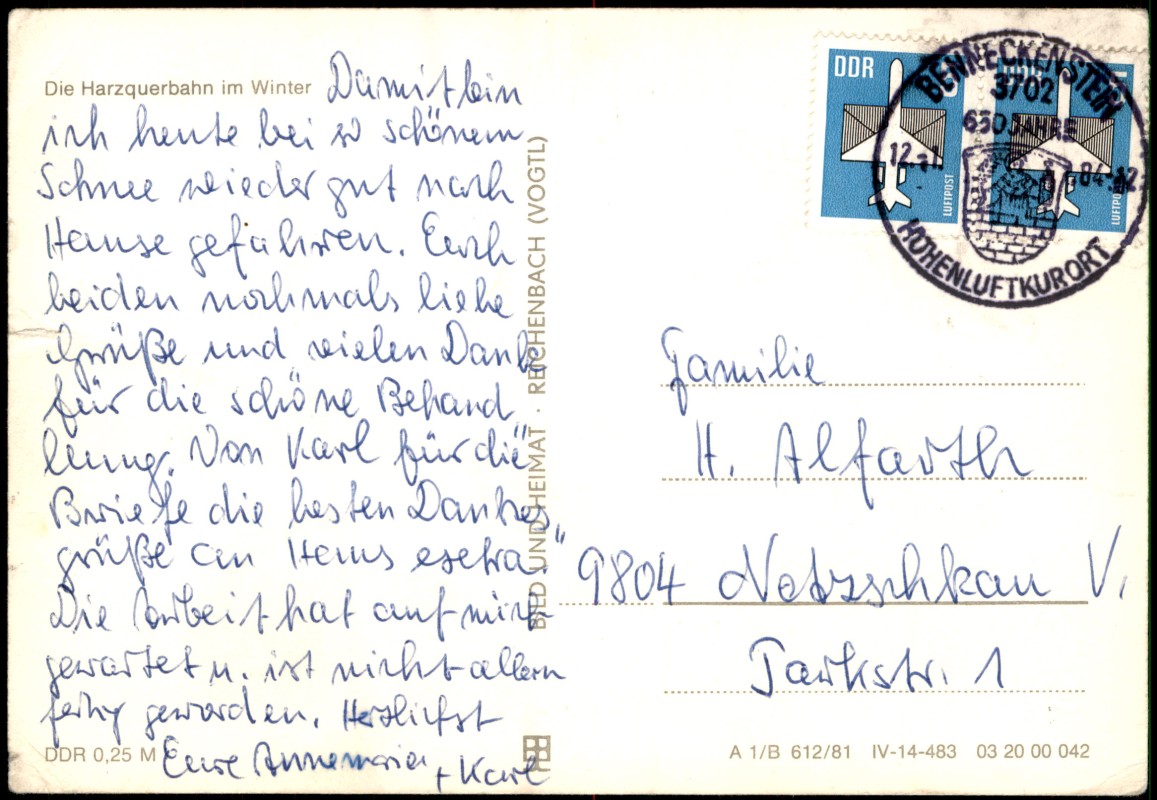 Die Harzquerbahn im Winter
Damit bin
ich heute bei so schönem
Schnee wieder gut nach
Hause gefahren. Euch
beiden nochmals liebe
Grüße und vielen Dank
für die schöne Behand
lung. Von Karl für die
Briefe die besten Dankes
grüße an Hans
Die Arbeit hat auf mich
gewartet u. ist nicht allein
fertig geworden. Herzlichst
Eure Annemarie + Karl
DDR 0,25 M
BILD UND HEIMAT · REICHENBACH (VOGTL)
DDR
LUFTPOST
DDR
5
LUFTPOST
BENNECKENSTEIN
3702
650 JAHRE
12.
84-12
HÖHENLUFTKURORT
Familie
H. Alfarth
9804 Netzschkau V.
Parkstr. 1
A 1/B 612/81 IV-14-483 03 20 00 042